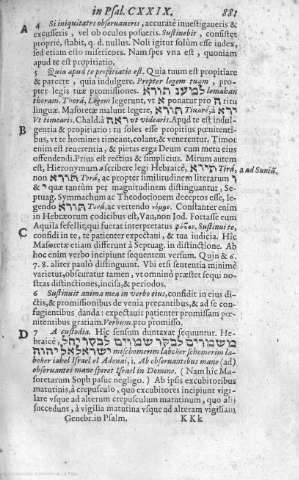 in Psal. CXXIX. 881
A 4 Si iniquitates obseruaueris, accuratè inuestigaueris &
excusseris, vel ob oculos posueris. Sustinebit, consistet
proprie, stabit, q. d. nullus. Noli igitur solum esse iudex,
sed etiam esto misericors. Nam spes vna est, quoniam
apud te est propitiatio.
5 Quia apud te propitiatio est. Quia tuum est propitiare
& parcere, quia indulgere. Propter legem tuam, pro-
pter legis tuæ promissiones. למען תורא lemahan
thoram. Tora, Legem legerunt, vt א ponatur pro ה in
lingua. Masoretæ malunt legere, תירא Tiuarè, à ירא
Vt timearis. Chaldæ vt videaris. Apud te est indul-
B gentia & propitiatio: tu soles esse propitius pœnitenti-
bus, vt te homines timeant, colant, & venerentur. Timor
enim est reuerentia, & pietas erga Deum cum metu eius
offendendi. Prius est rectius & simplicius. Mirum autem
est, Hieronymum a scribere legi Hebraicè, תירא Tira, a ad Suniã.
non תורא Tora, ac propter similitudinem literarum ו
& י quæ tantùm per magnitudinem distinguuntur, Se-
ptuag. Symmachum ac Theodotionem deceptos esse, le-
gendo תורא Tora, ac vertendo νόμου. Constanter enim
in Hebræorum codicibus est, Vau, non Iod. Fortasse eum
Aquila fefellit, qui fuerat interpretatus φόβου, Sustinui te,
C confidi in te, patienter expectaui, & tua iudicia. Hîc
Masoretæ etiam differunt à Septuag. in distinctione. Ab
hoc enim verbo incipiunt sequentem versum. Quin & 6.
7. 8. aliter paulò distinguunt. Vbi etsi sententia minimè
varietur, obscuratur tamen, vt omninò præstet sequi no-
stras distinctiones, incisa, & periodos.
6 Sustinuit anima mea in verbo eius, confidit in eius di-
ctis, & promissionibus de venia precantibus, & ad se con-
fugientibus danda: expectauit patienter promissam pœ-
nitentibus gratiam. Verbum, pro promisso.
D 7 A custodia. Hîc sensum duntaxat sequuntur. He-
braicè, משמרים לבקר שמרים לבקר יחל
ישראל אל יהוה mischomerim laboker schomerim la-
boker iahel Israel el Adonai, i. Ab obseruantibus mane (ad)
obseruantes mane speret Israel in Domino. (Nam hîc Ma-
soretarum Soph pasuc negligo.) Ab ipsis excubitoribus
matutinis, à crepusculo, quo excubitores incipiunt vigi-
lare vsque ad alterum crepusculum matutinum, quo alii
succedunt, à vigilia matutina vsque ad alteram vigiliam
Genebr. in Psalm. K K k